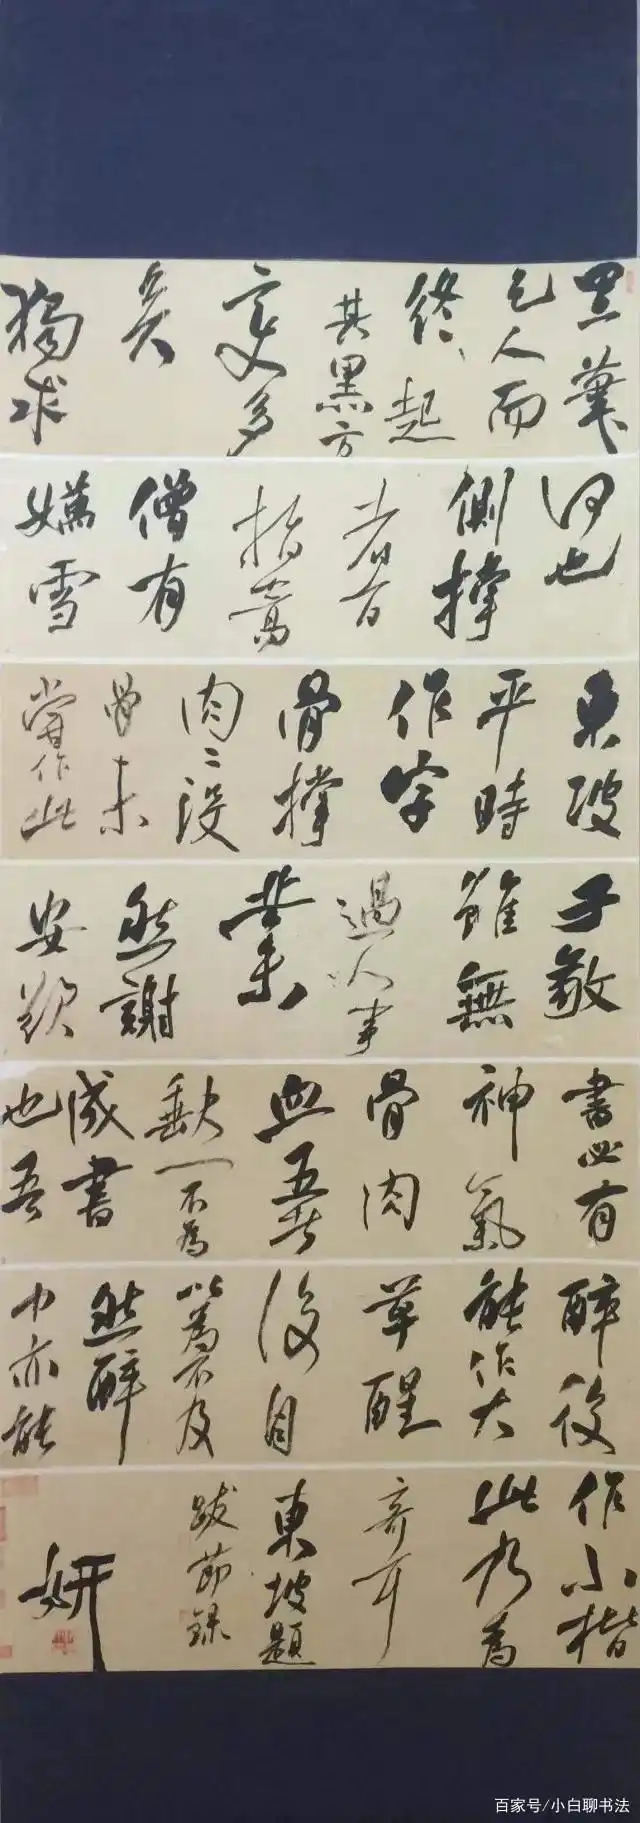 筆
人而
終、起
其黑方
變多
矣
獨求
何也
側撑
者百
指萬
僧有
嫣雪
東坡
平時
作字
骨撑
肉〻沒
骨未
嘗作此
子敬
雖無
過人事
業
然謝
安欲
書必有
神氣
骨肉
血五者
缺一不為
成書
也吾
醉後
能作大
草醒
後自
以為不及
然醉
中亦能
作小楷
此乃為
奇耳
東坡題
跋節錄
妍
百家号/小白聊书法